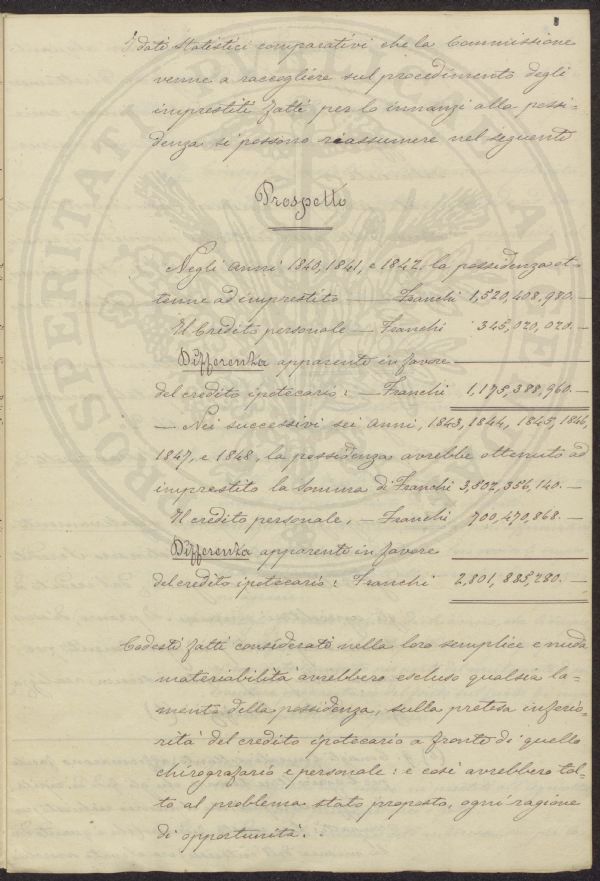 I dati statistici comparativi che la Commissione
venne a raccogliere sul procedimento degli
imprestiti fatti per lo innanzi alla possi-
denza si possono riassumere nel seguente
Prospetto
Negli anni 1840, 1841, e 1842, la possidenza ot-
tenne ad imprestito — Franchi 1,520,408,980. —
Il Credito personale — Franchi 345,020,020. —
Differenza apparente in favore
del credito ipotecario: — Franchi 1,175,388,960. —
— Nei successivi sei anni, 1843, 1844, 1845, 1846,
1847, e 1848, la possidenza avrebbe ottenuto ad
imprestito la somma di Franchi 3,502,356,140. —
Il credito personale, — Franchi 700,470,868. —
Differenza apparente in favore
del credito ipotecario: Franchi 2,801,885,280. —
Codesti fatti considerati nella loro semplice e nuda
materiabilità avrebbero escluso qualsia la-
mento della possidenza, sulla pretesa inferio-
rità del credito ipotecario a fronte di quello
chirografario e personale: e così avrebbero tol-
to al problema stato proposto, ogni ragione
di opportunità.
PROSPERITATI PUBLICAE